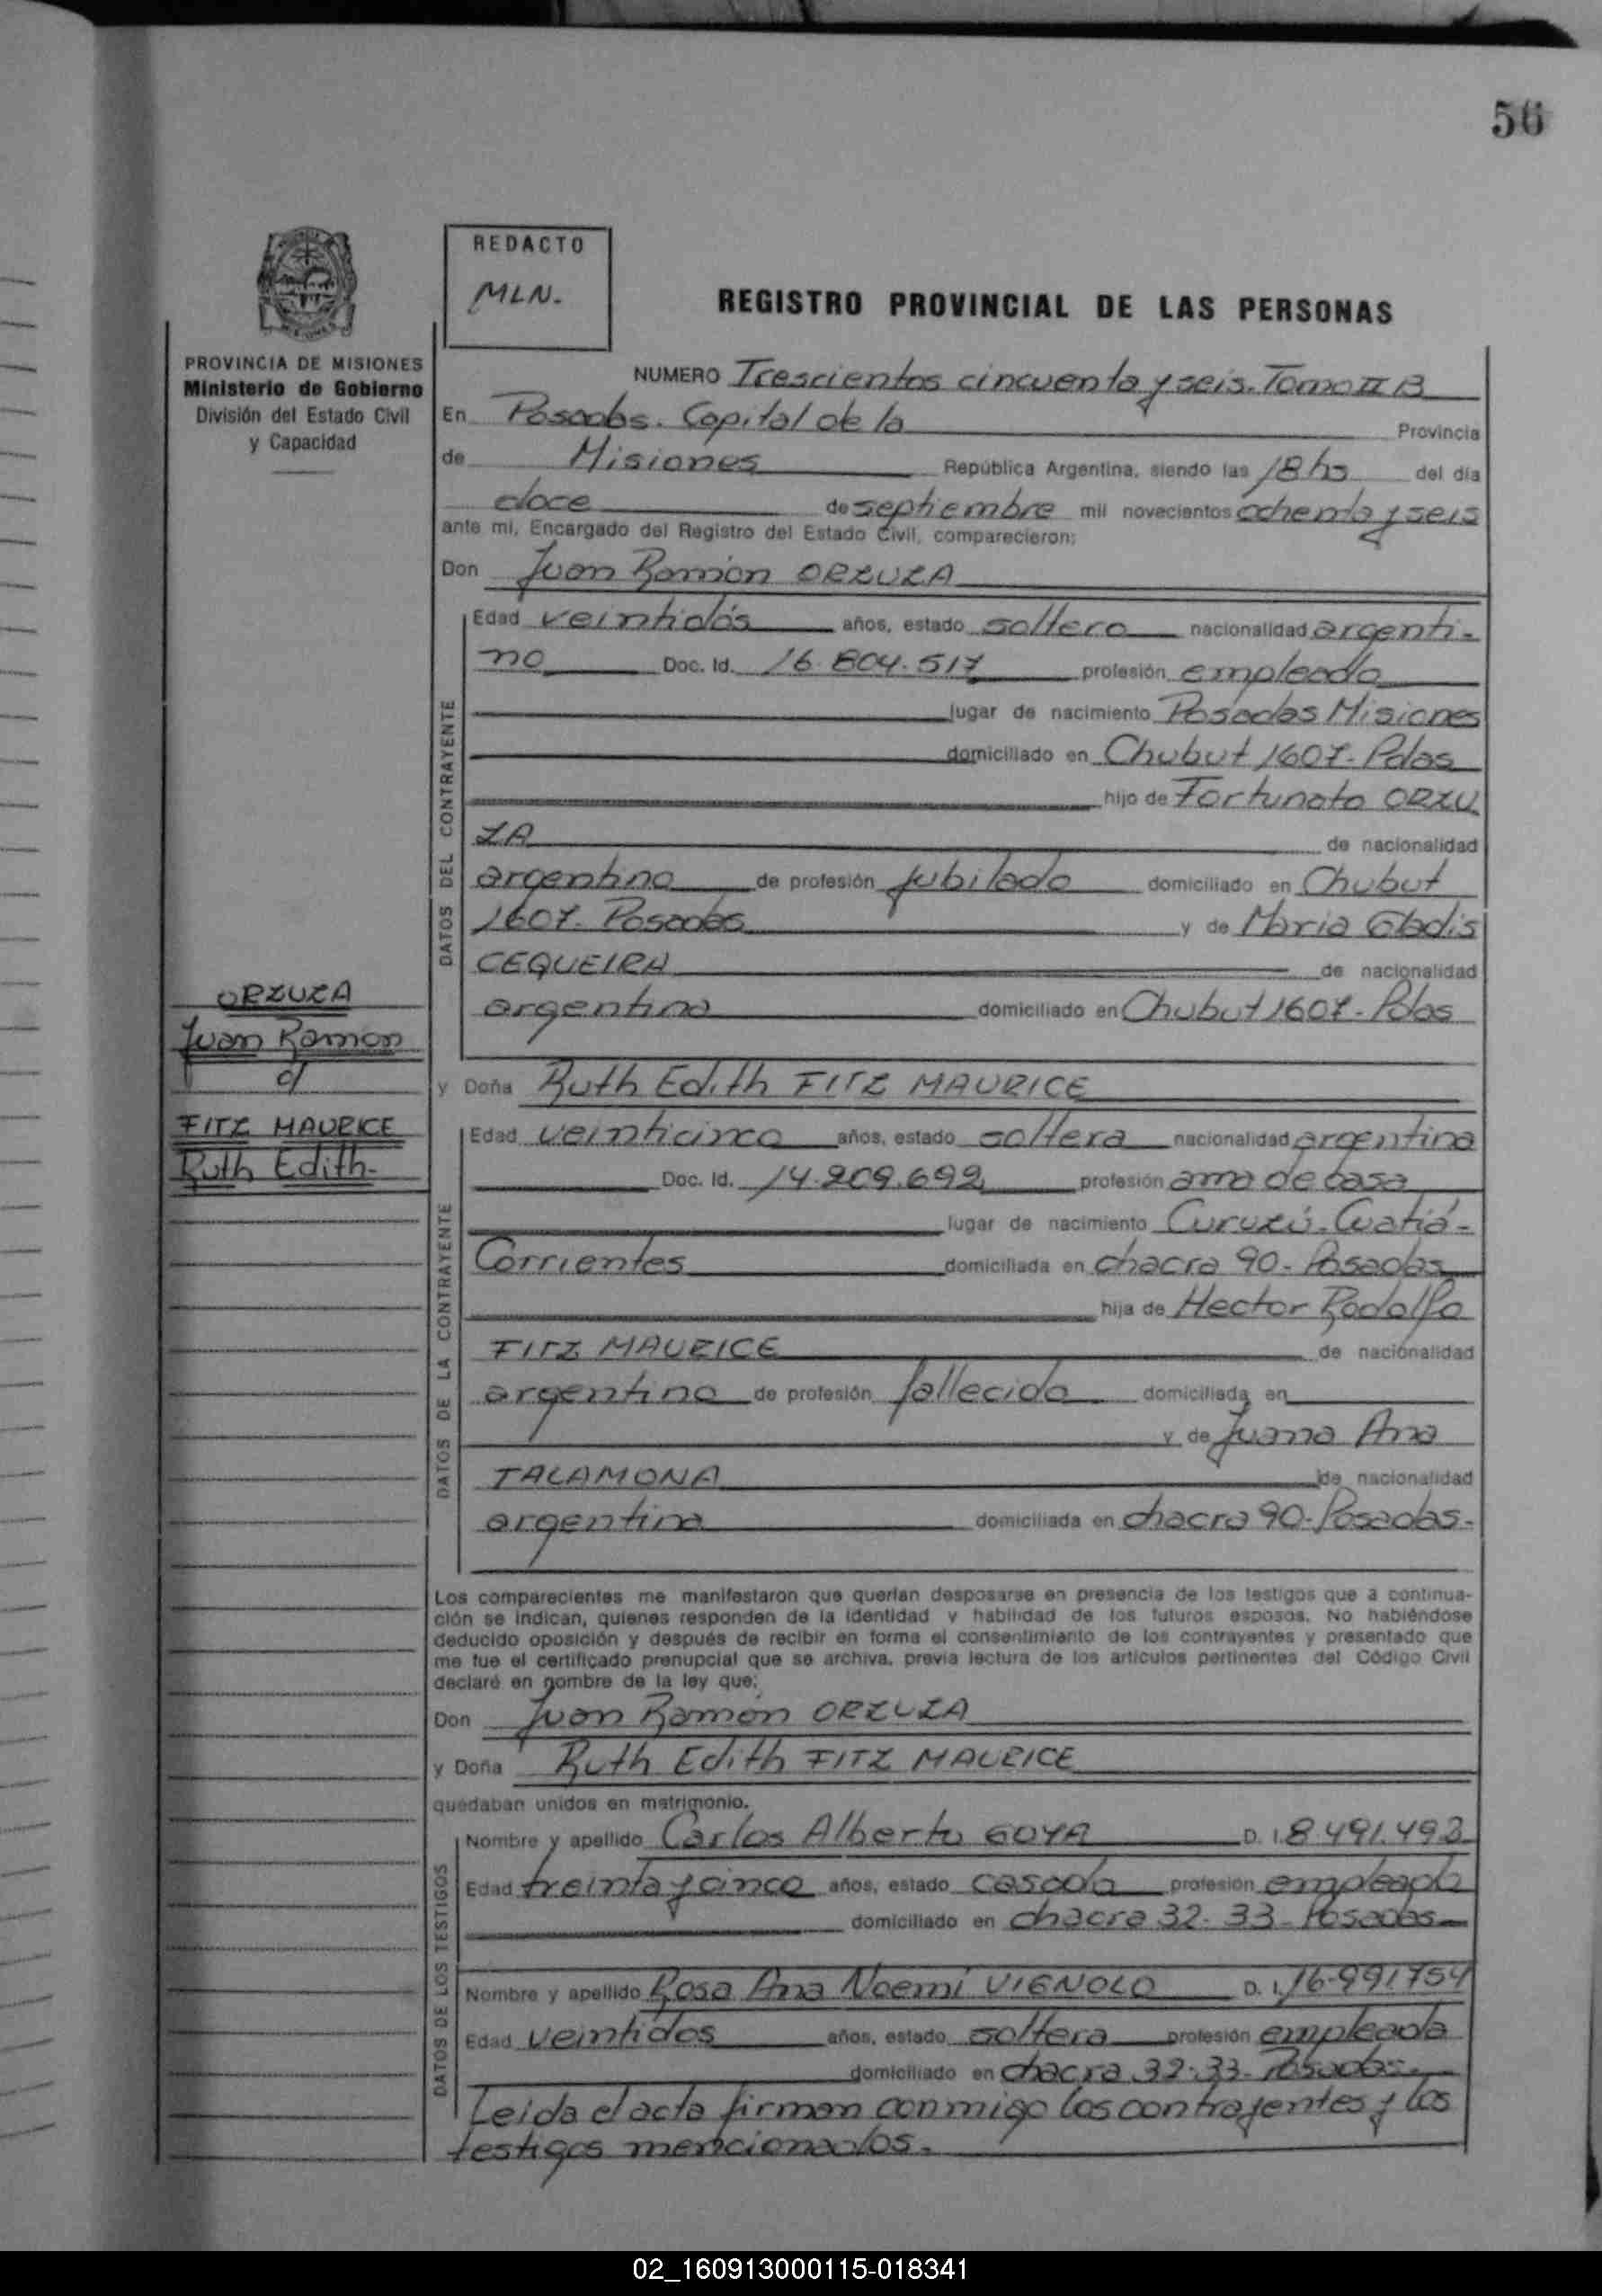 56
REDACTO
MLN.
REGISTRO PROVINCIAL DE LAS PERSONAS
PROVINCIA DE MISIONES
Ministerio de Gobierno
División del Estado Civil
y Capacidad
NUMERO Trescientos cincuenta y seis. Tomo II B
En Posadas. Capital de la Provincia
de Misiones República Argentina, siendo las 18 hs del día
doce de septiembre mil novecientos ochenta y seis
ante mi, Encargado del Registro del Estado Civil, comparecieron:
Don Juan Ramón ORZUZA
Edad veintidós años, estado soltero nacionalidad argenti-
no Doc. Id. 16.804.517 profesión empleado
lugar de nacimiento Posadas Misiones
domiciliado en Chubut 1607- Pdas
hijo de Fortunato ORZU
ZA de nacionalidad
argentino de profesión jubilado domiciliado en Chubut
1607- Posadas y de Maria Gladis
CEQUEIRA de nacionalidad
argentina domiciliado en Chubut 1607- Pdas
ORZUZA
Juan Ramon
c/
FITZ MAURICE
Ruth Edith-
y Doña Ruth Edith FITZ MAURICE
Edad veinticinco años, estado soltera nacionalidad argentina
Doc. Id. 14.209.692 profesión ama de casa
lugar de nacimiento Curuzú. Cuatiá-
Corrientes domiciliada en chacra 90- Posadas
hija de Hector Rodolfo
FITZ MAURICE de nacionalidad
argentino de profesión fallecido domiciliada en
y de Juana Ana
TALAMONA de nacionalidad
argentina domiciliada en chacra 90- Posadas-
Los comparecientes me manifestaron que querían desposarse en presencia de los testigos que a continua-
ción se indican, quienes responden de la identidad y habilidad de los futuros esposos. No habiéndose
deducido oposición y después de recibir en forma el consentimiento de los contrayentes y presentado que
me fue el certificado prenupcial que se archiva, previa lectura de los artículos pertinentes del Código Civil
declaré en nombre de la ley que:
Don Juan Ramón ORZUZA
y Doña Ruth Edith FITZ MAURICE
quedaban unidos en matrimonio.
Nombre y apellido Carlos Alberto GOYA D. I. 8.491.493
Edad treinta y cinco años, estado casado profesión empleado
domiciliado en chacra 32- 33- Posadas
Nombre y apellido Rosa Ana Noemí VIGNOLO D. I. 16.991.754
Edad veintidos años, estado soltera profesión empleada
domiciliado en chacra 32-33- Posadas.
Leida el acta firman conmigo los contrayentes y los
testigos mencionados.
DATOS DEL CONTRAYENTE
DATOS DE LA CONTRAYENTE
DATOS DE LOS TESTIGOS
02_160913000115-018341